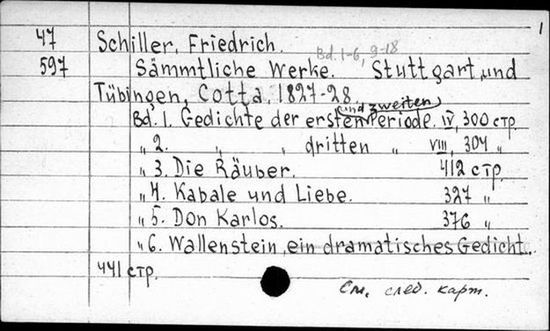 1
47 Schiller, Friedrich.
Bd. 1-6, 9-18
597 Sämmtliche Werke. Stuttgart und
Tübingen, Cotta, 1827-28
und zweiten
Bd. 1. Gedichte der ersten Periode. IV, 300 стр.
„ 2. „ „ dritten „ VIII, 304 „
„ 3. Die Räuber. 412 стр.
„ 4. Kabale und Liebe. 327 „
„ 5. Don Karlos. 376 „
„ 6. Wallenstein, ein dramatisches Gedicht.
441 стр.
См. след. карт.